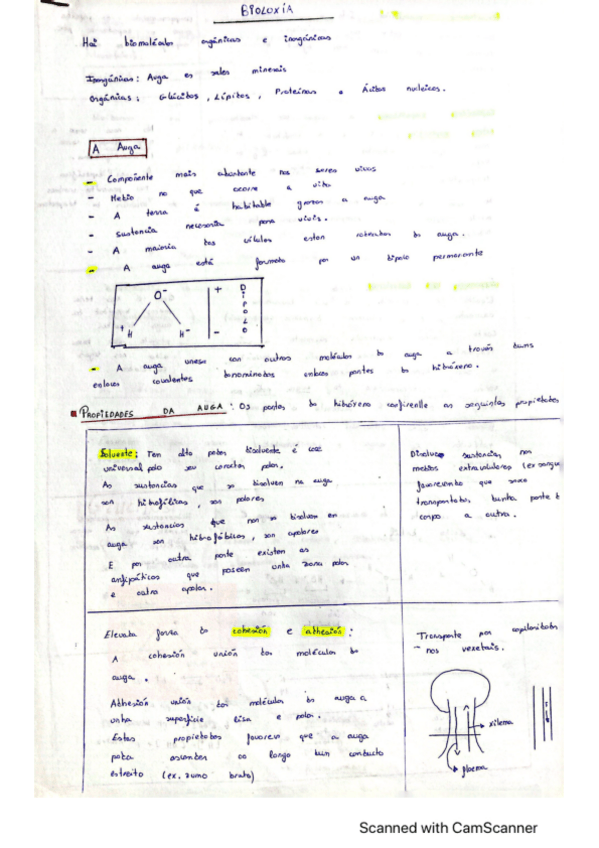 BIOLOXÍA
Hai biomoléculas orgánicas e inorgánicas
Inorgánicas: Auga es sales minerais
Orgánicas: Glúcidos, Lípidos, Proteínas e Ácidos nucleicos.
A Auga
- Compoñente mais abundante nos seres vivos
- Medio no que ocorre a vida
- A terra é habitable grazas a auga
- Sustancia necesaria para vivir.
- A maioría das células estan rodeadas de auga.
- A auga está formada por un dipolo permanente
O-
+H H-
+
-
DIPOLO
- A auga unese con outras moléculas de auga a través duns
enlaces covalentes denominados enlaces pontes de hidróxeno.
PROPIEDADES DA AUGA: Os pontes de hidróxeno confirenlle as seguintes propiedades
Solvente: Ten alto poder disolvente é case
universal polo seu caracter polar.
As sustancias que se disolven na auga
son hidrofílicas, son polares
As sustancias que non se disolven en
auga son hidrofóbicas, son apolares
E por outra parte existen as
anfipáticas que poseen unha zona polar
e outra apolar.
Disolve sustancias nos
medios extracelulares (ex sangue
favorecendo que sexa
transportadas dunha parte d
corpo a outra.
Elevada forza de cohesión e adhesión:
A cohesión unión das moléculas de
auga.
Adhesión unión das moléculas de auga a
unha superficie lisa e polar.
Estas propiedades favorecen que a auga
poda ascender ao longo dun conducto
estreito (ex. zume bruto)
Transporte por capilaridade
- nos vexetais.
xilema
floema
Scanned with CamScanner